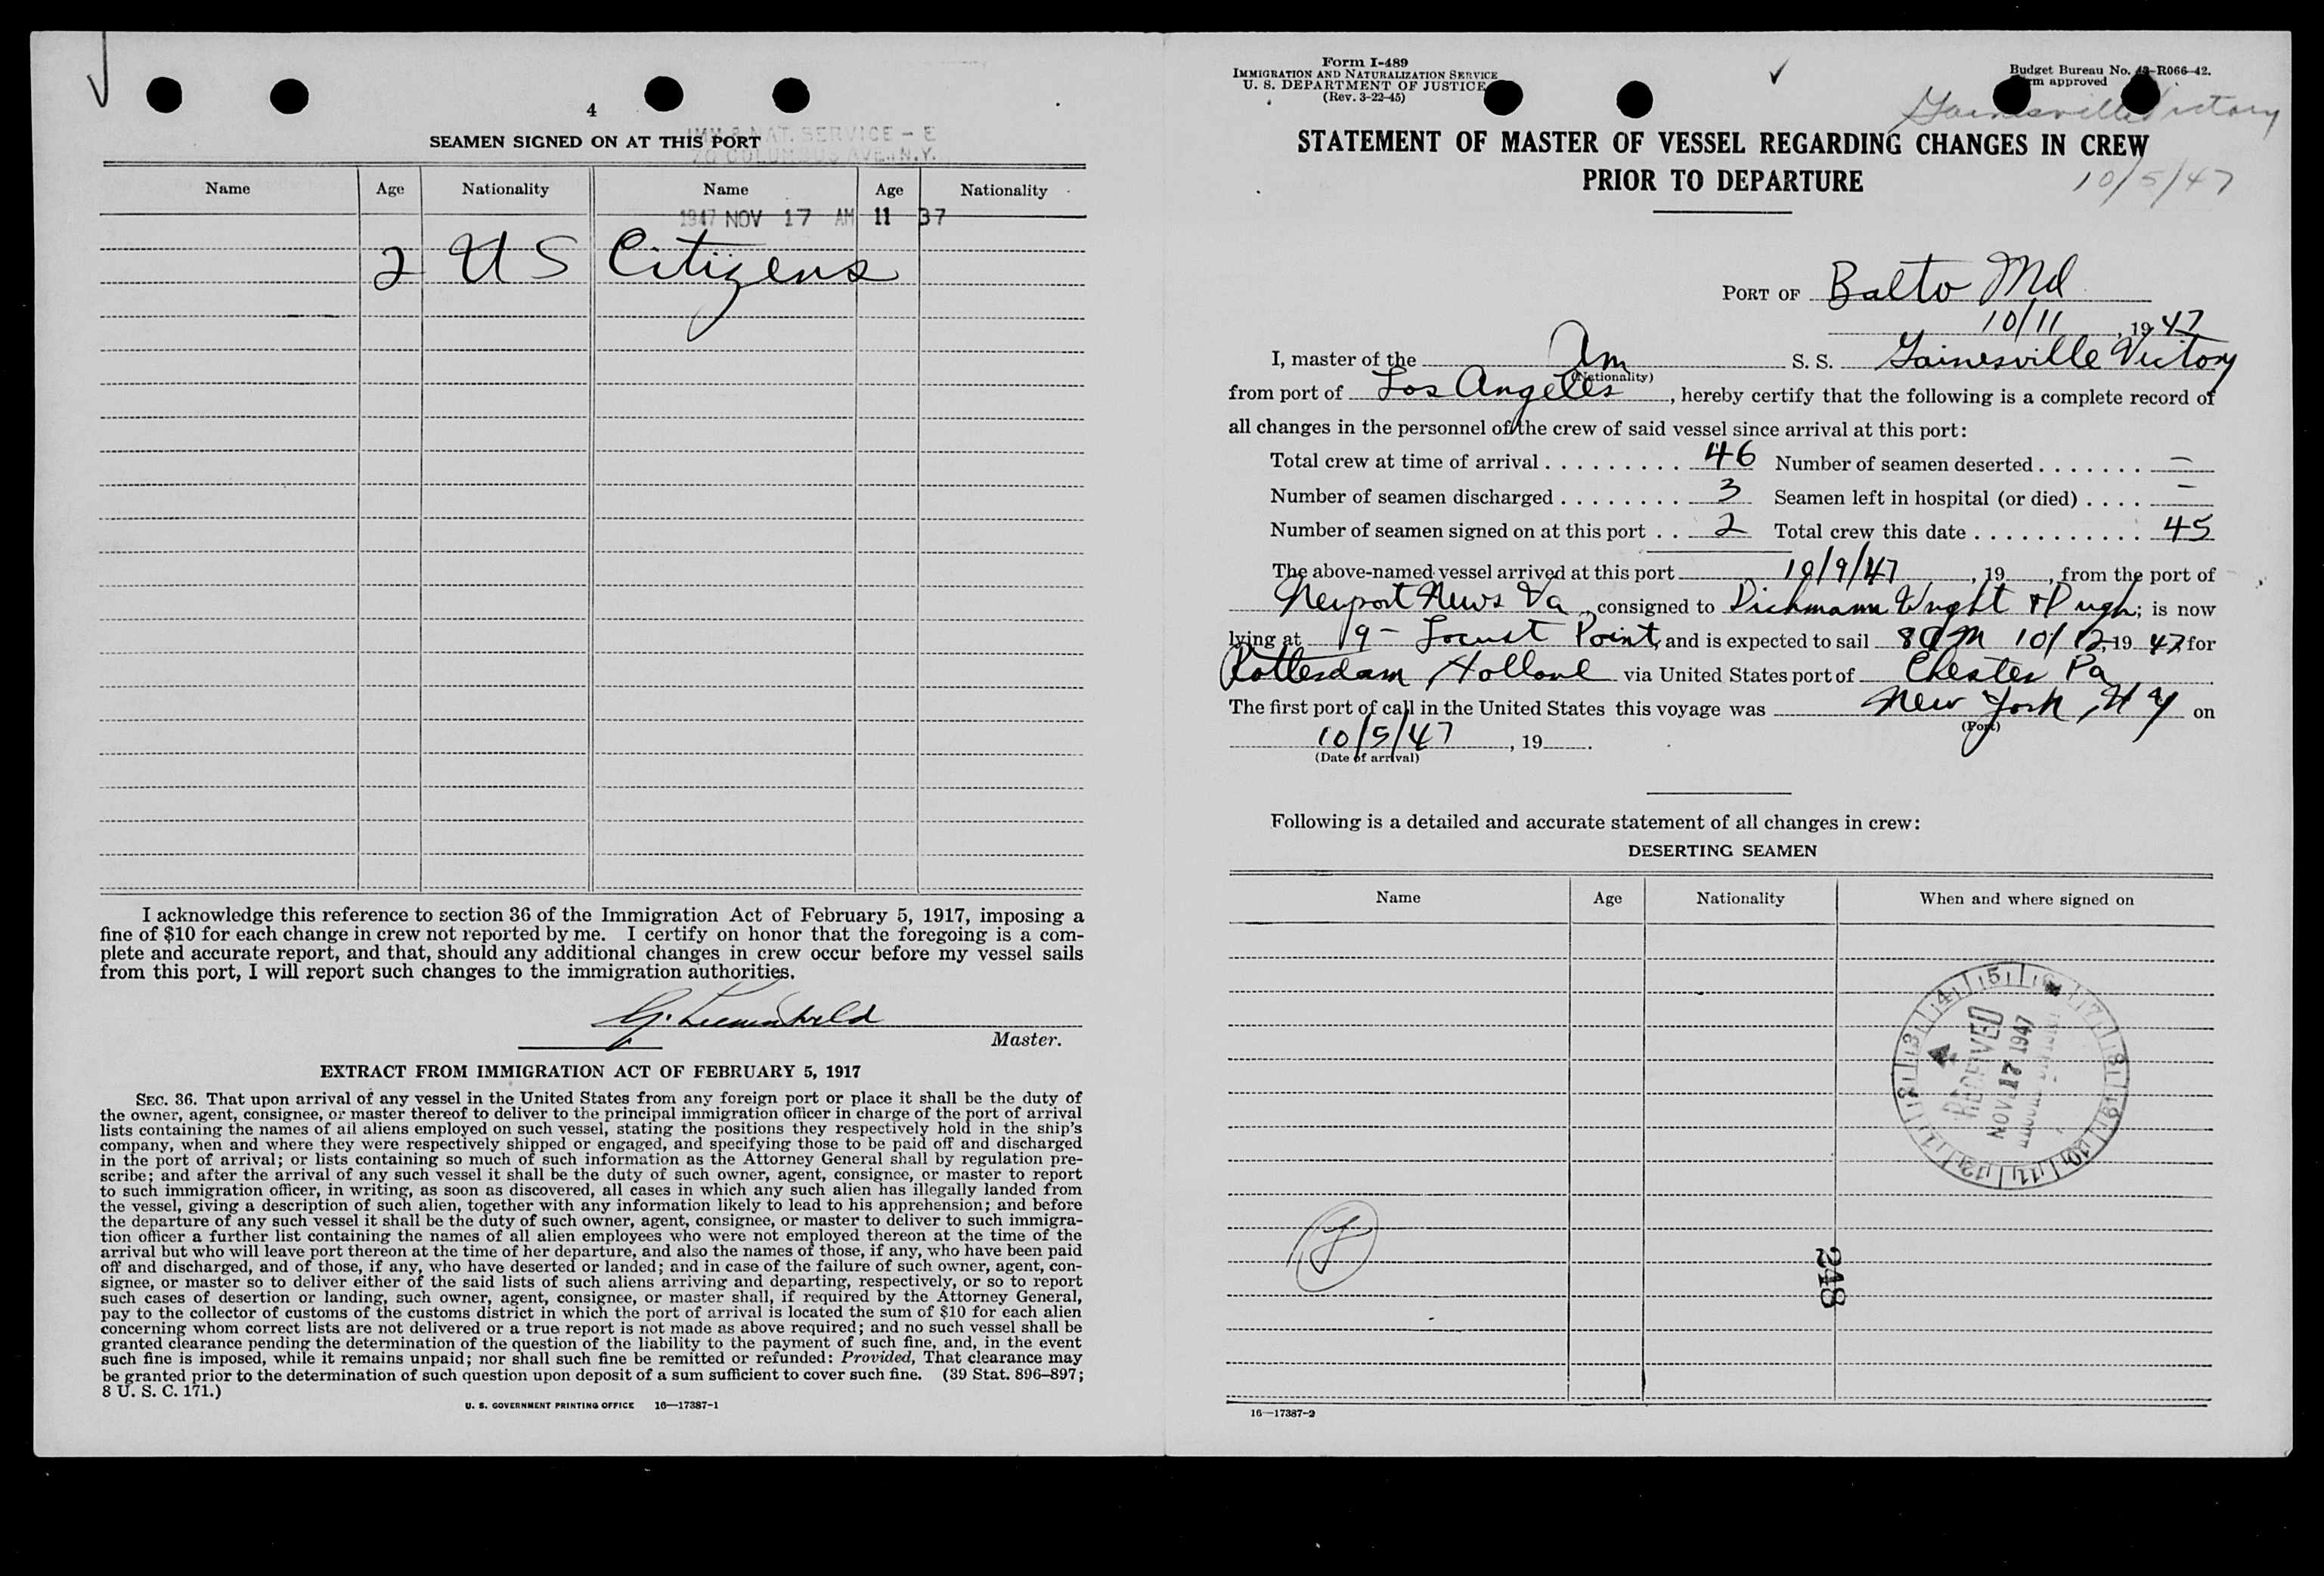 4
IMM & NAT. SERVICE - E
SEAMEN SIGNED ON AT THIS PORT
70 COLUMBUS AVE. N.Y.
Name Age Nationality Name Age Nationality
1947 NOV 17 AM 11 37
2 US Citizens
I acknowledge this reference to section 36 of the Immigration Act of February 5, 1917, imposing a
fine of $10 for each change in crew not reported by me. I certify on honor that the foregoing is a com-
plete and accurate report, and that, should any additional changes in crew occur before my vessel sails
from this port, I will report such changes to the immigration authorities.
G.
Master.
EXTRACT FROM IMMIGRATION ACT OF FEBRUARY 5, 1917
SEC. 36. That upon arrival of any vessel in the United States from any foreign port or place it shall be the duty of
the owner, agent, consignee, or master thereof to deliver to the principal immigration officer in charge of the port of arrival
lists containing the names of all aliens employed on such vessel, stating the positions they respectively hold in the ship's
company, when and where they were respectively shipped or engaged, and specifying those to be paid off and discharged
in the port of arrival; or lists containing so much of such information as the Attorney General shall by regulation pre-
scribe; and after the arrival of any such vessel it shall be the duty of such owner, agent, consignee, or master to report
to such immigration officer, in writing, as soon as discovered, all cases in which any such alien has illegally landed from
the vessel, giving a description of such alien, together with any information likely to lead to his apprehension; and before
the departure of any such vessel it shall be the duty of such owner, agent, consignee, or master to deliver to such immigra-
tion officer a further list containing the names of all alien employees who were not employed thereon at the time of the
arrival but who will leave port thereon at the time of her departure, and also the names of those, if any, who have been paid
off and discharged, and of those, if any, who have deserted or landed; and in case of the failure of such owner, agent, con-
signee, or master so to deliver either of the said lists of such aliens arriving and departing, respectively, or so to report
such cases of desertion or landing, such owner, agent, consignee, or master shall, if required by the Attorney General,
pay to the collector of customs of the customs district in which the port of arrival is located the sum of $10 for each alien
concerning whom correct lists are not delivered or a true report is not made as above required; and no such vessel shall be
granted clearance pending the determination of the question of the liability to the payment of such fine, and, in the event
such fine is imposed, while it remains unpaid; nor shall such fine be remitted or refunded: Provided, That clearance may
be granted prior to the determination of such question upon deposit of a sum sufficient to cover such fine. (39 Stat. 896–897;
8 U. S. C. 171.)
U. S. GOVERNMENT PRINTING OFFICE 16—17387-1
Form I-489
IMMIGRATION AND NATURALIZATION SERVICE
U. S. DEPARTMENT OF JUSTICE
(Rev. 3-22-45)
Budget Bureau No. 43-R066-42.
approved
Gainesville Victory
STATEMENT OF MASTER OF VESSEL REGARDING CHANGES IN CREW
PRIOR TO DEPARTURE
10/5/47
PORT OF Balto Md
10/11, 1947
I, master of the Am S. S. Gainesville Victory
(Nationality)
from port of Los Angeles, hereby certify that the following is a complete record of
all changes in the personnel of the crew of said vessel since arrival at this port:
Total crew at time of arrival 46 Number of seamen deserted –
Number of seamen discharged 3 Seamen left in hospital (or died) –
Number of seamen signed on at this port 2 Total crew this date 45
The above-named vessel arrived at this port 10/9/47, 19, from the port of
Newport News Va, consigned to Dichmann Wright & Pugh; is now
lying at 9 - Locust Point, and is expected to sail 8 AM 10/12, 1947 for
Rotterdam, Holland via United States port of Chester Pa
The first port of call in the United States this voyage was New York, NY on
(Port)
10/5/47, 19.
(Date of arrival)
Following is a detailed and accurate statement of all changes in crew:
DESERTING SEAMEN
Name Age Nationality When and where signed on
RECEIVED
NOV 17 1947
1 2 3 4 5 6 7 8 9 10 11 12
248
16—17387-2